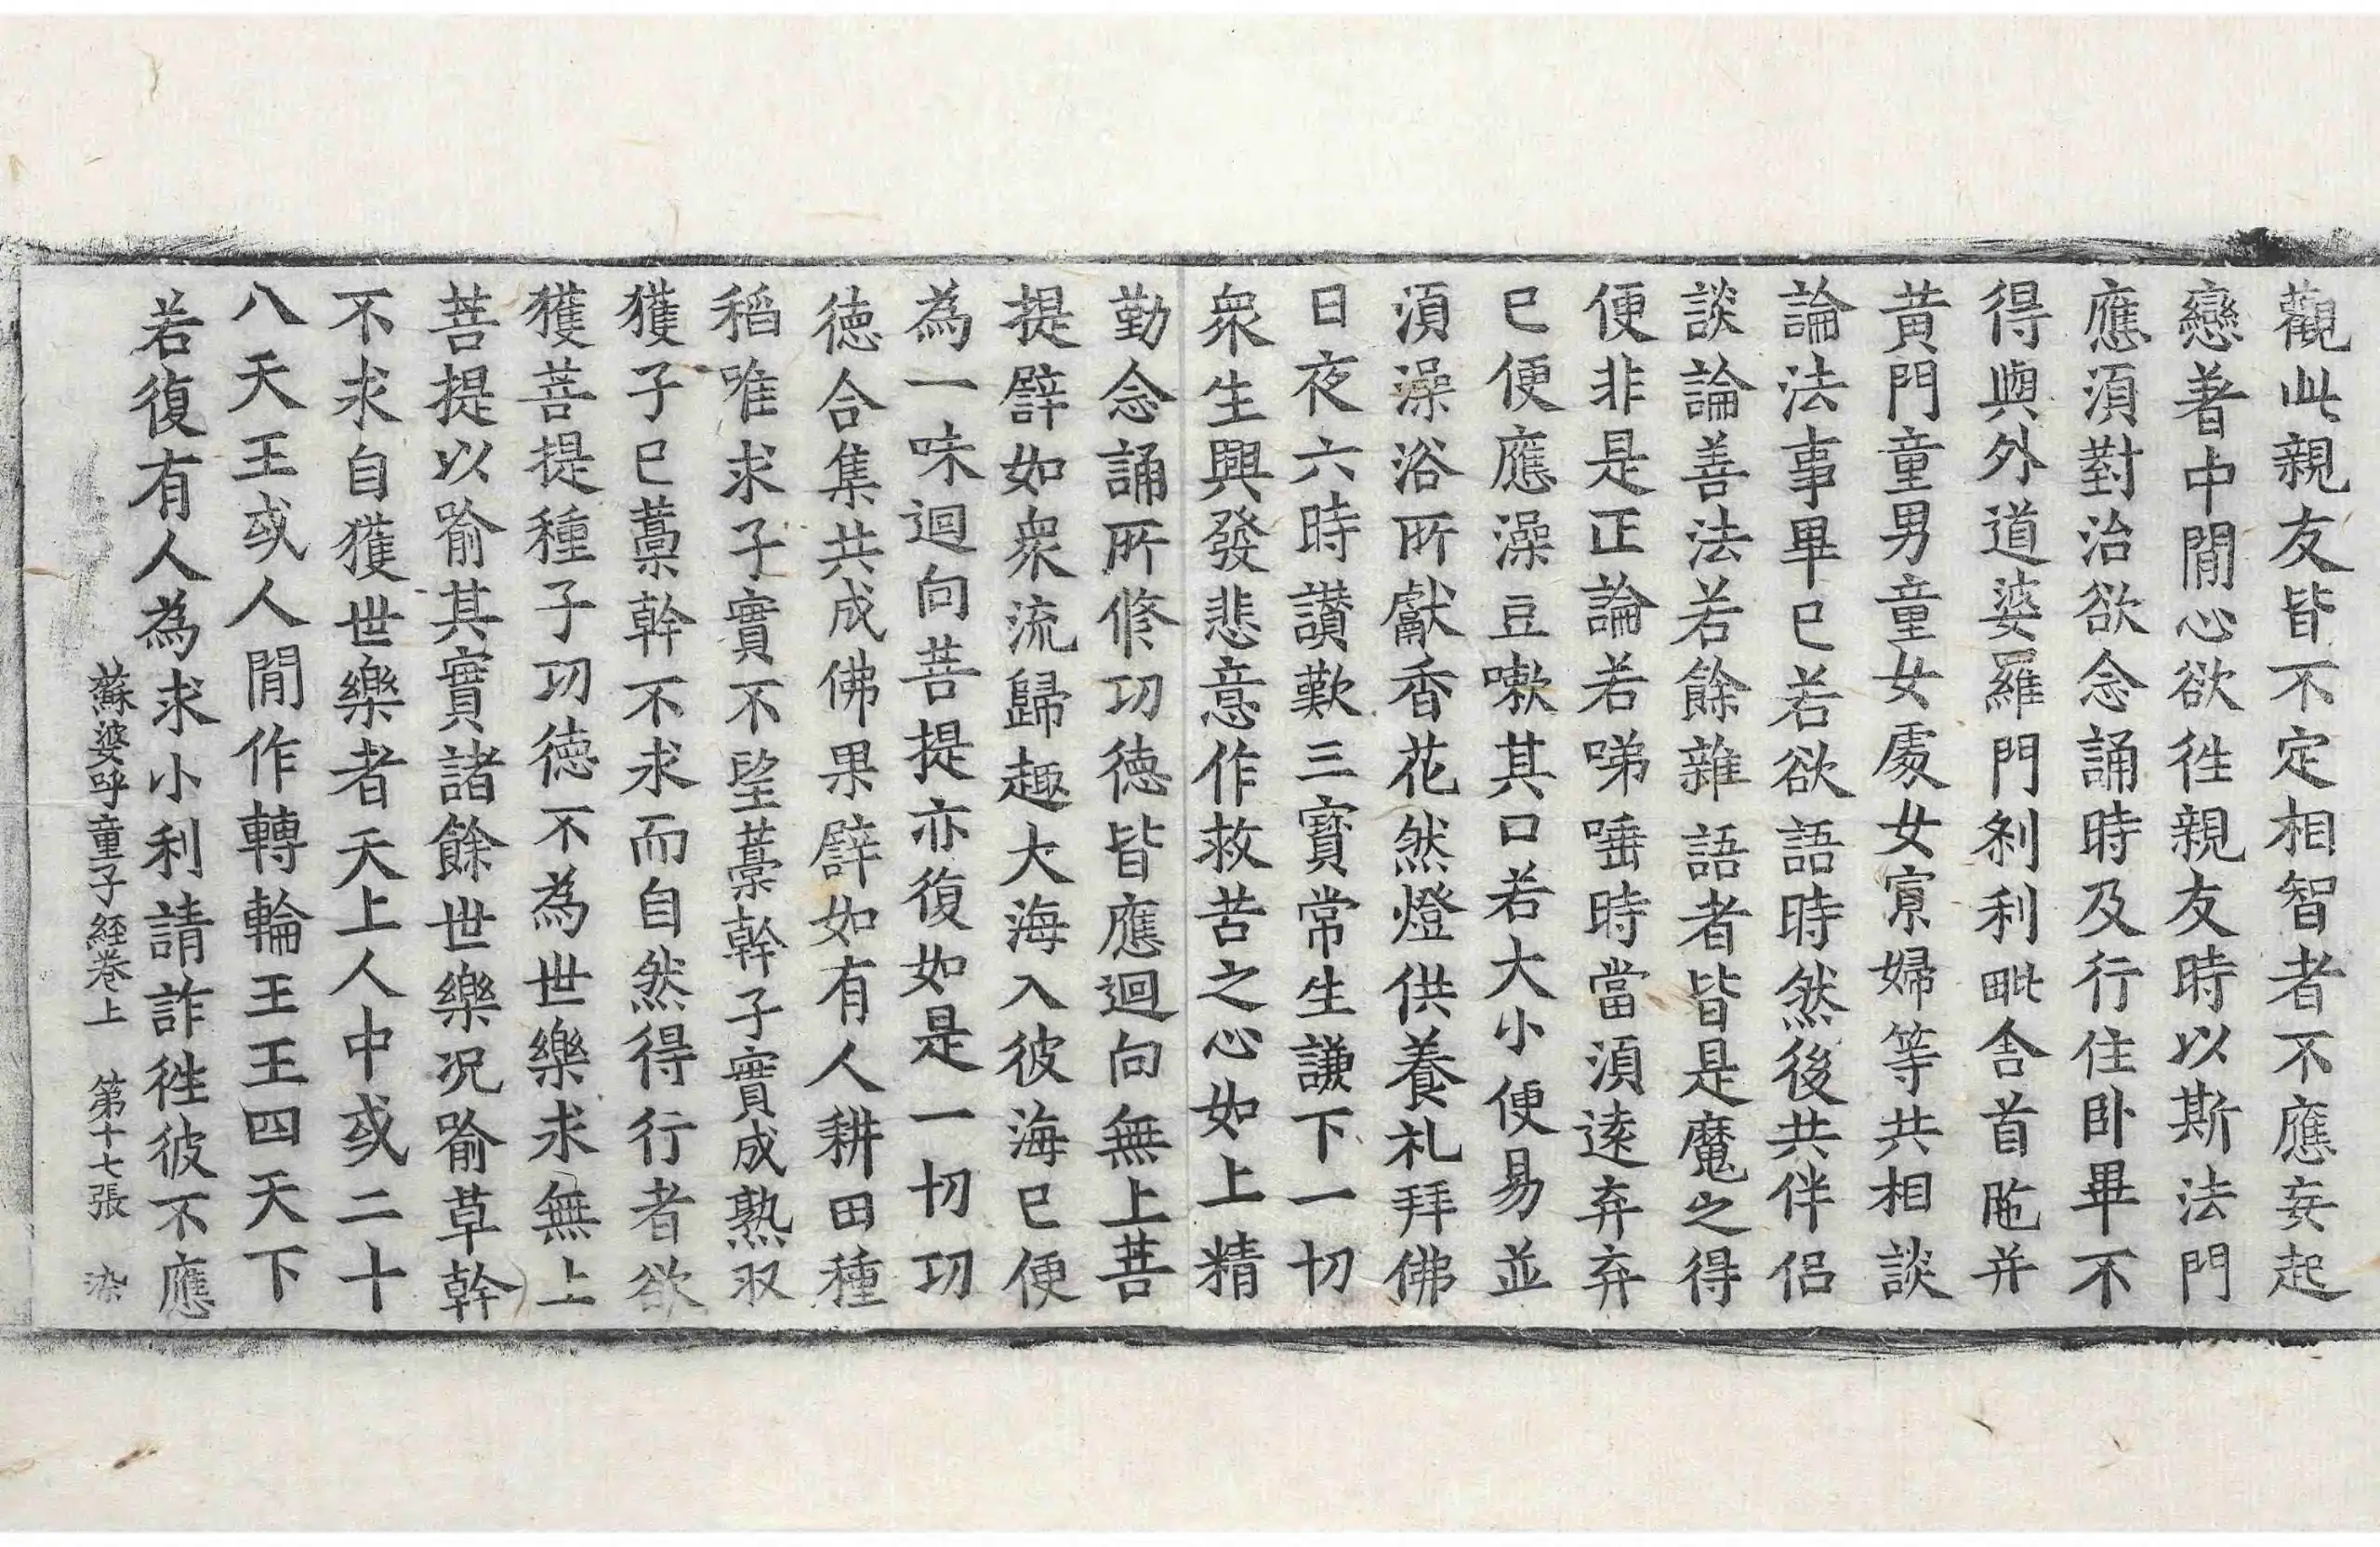 觀此親友皆不定相智者不應妄起
戀著中閒心欲徃親友時以斯法門
應湏對治欲念誦時及行住卧畢不
得與外道婆羅門刹利毗舍首陁并
黄門童男童女處女寡婦等共相談
論法事畢已若欲語時然後共伴侣
談論善法若餘雜語者皆是魔之得
便非是正論若㖒唾時當湏遠弃弃
已便應澡豆嗽其口若大小便易並
湏澡浴所獻香花然燈供養礼拜佛
日夜六時讚歎三寳常生謙下一切
衆生興發悲意作救苦之心如上精
勤念誦所修功徳皆應迴向無上菩
提譬如衆流歸趣大海入彼海已便
為一味迴向菩提亦復如是一切功
徳合集共成佛果譬如有人耕田種
稻唯求子實不望藁幹子實成熟收
獲子已藁幹不求而自然得行者欲
獲菩提種子功徳不為世樂求無上
菩提以喻其實諸餘世樂况喻草幹
不求自獲世樂者天上人中或二十
八天王或人閒作轉輪王王四天下
若復有人為求小利請詐徃彼不應
蘇婆呼童子経卷上　第十七張　染